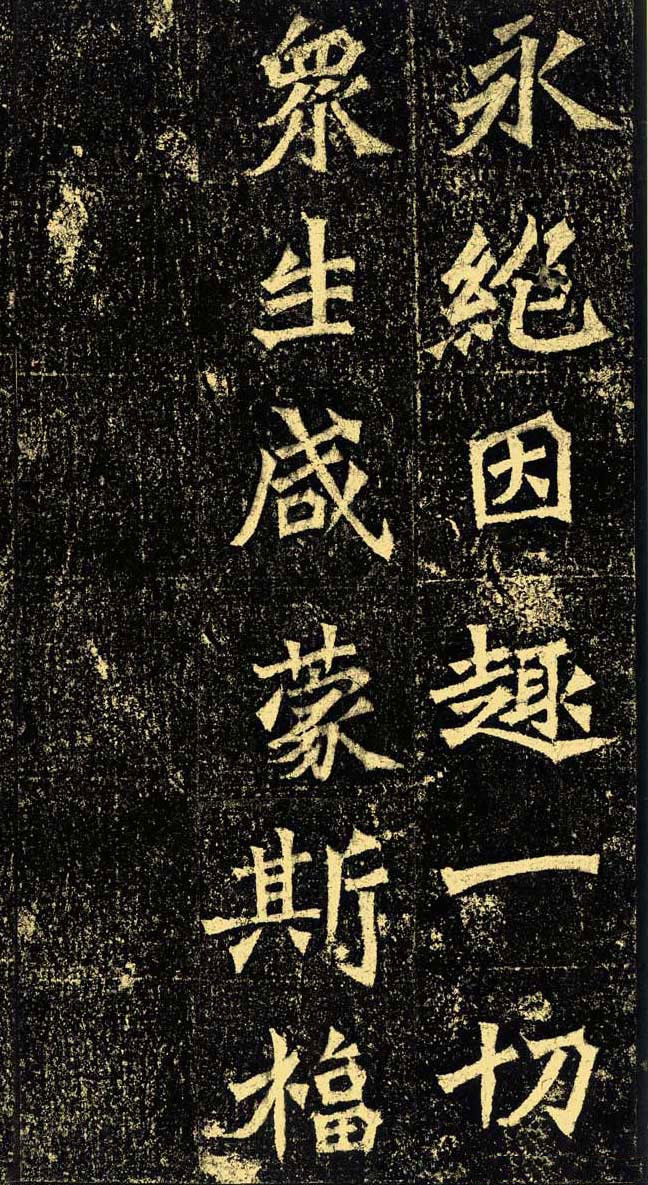 永絶因趣一切
眾生咸蒙斯福